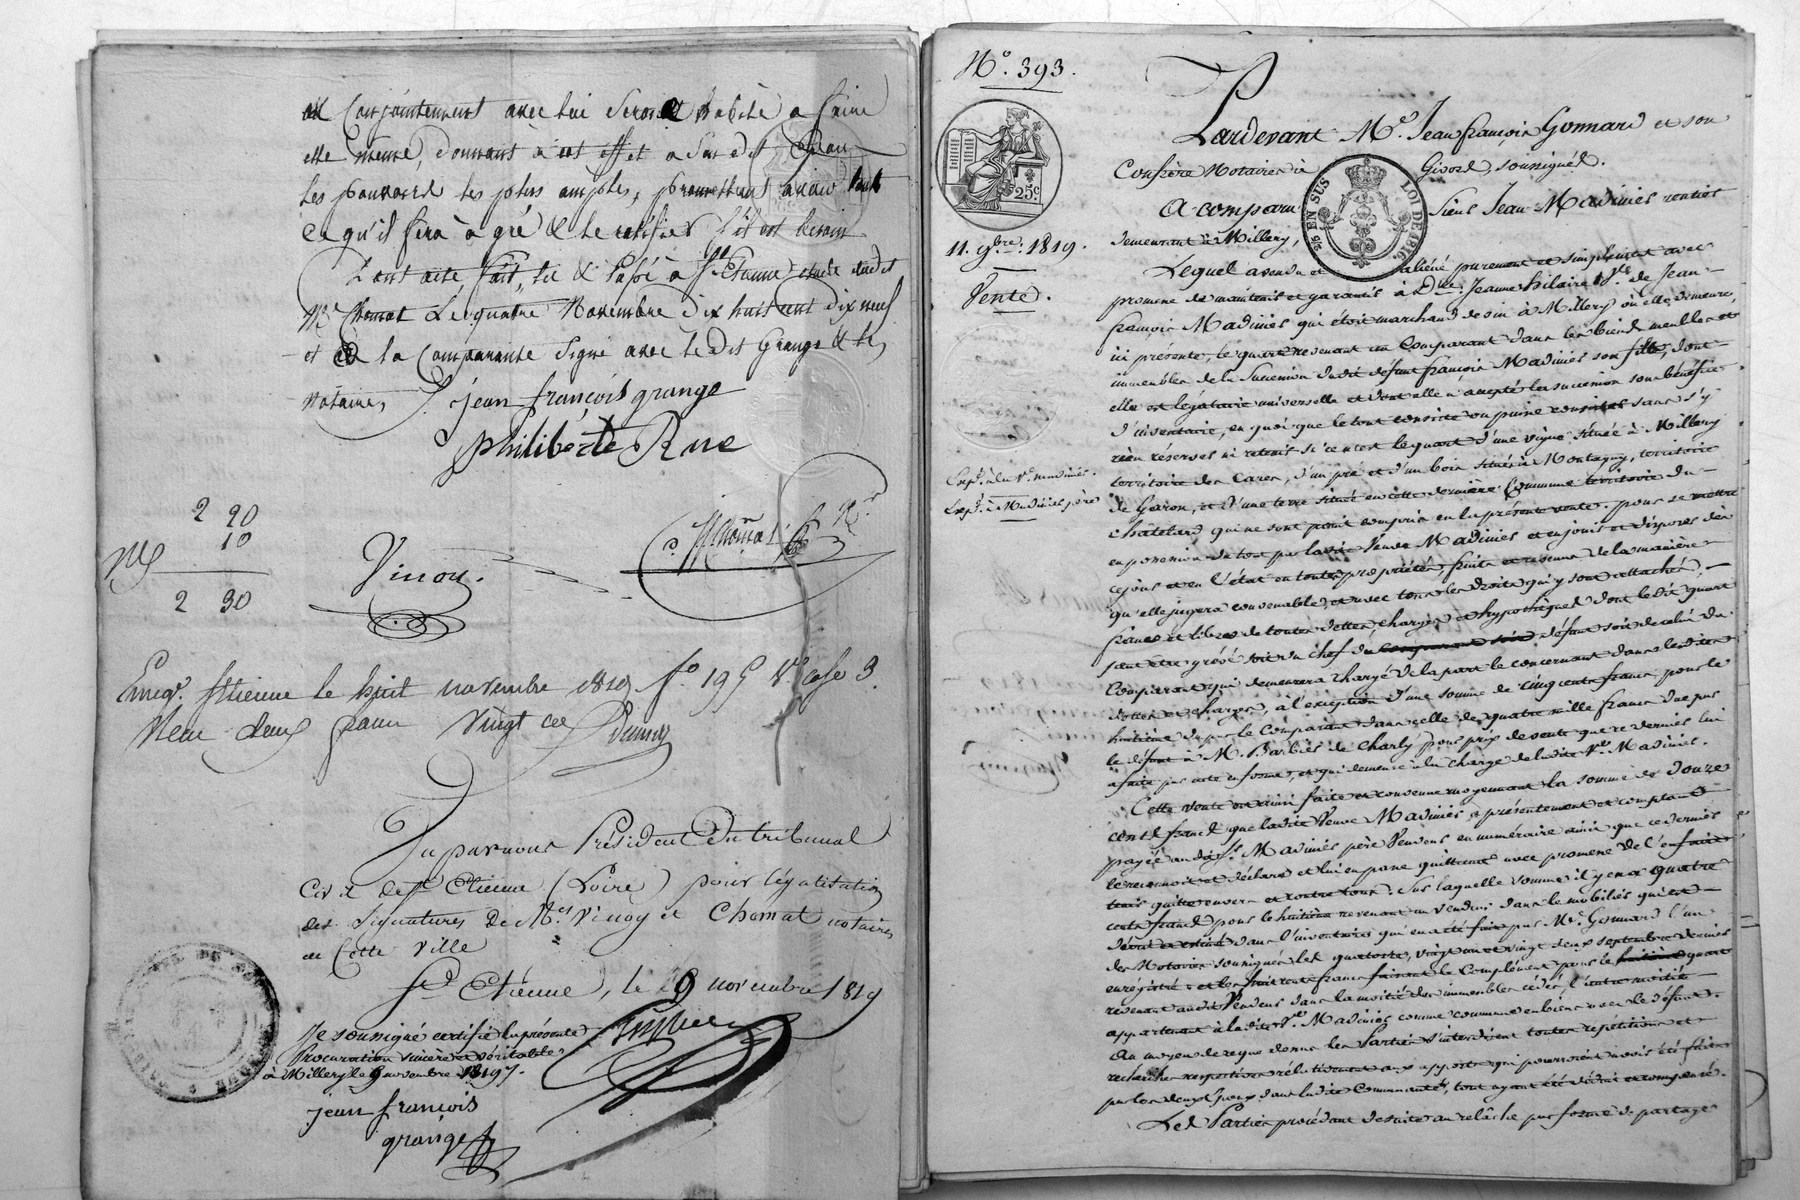 conjointement avec lui seroit habile a faire
elle même, donnant à cet effet a son dit Epoux
les pouvoirs les plus amples, promettant avoir tout
ce qu'il fera à gré & le ratifier s'il est besoin
Dont acte, fait, lu & passé à St. Etienne etude dudit
Me Chomat Le quatre Novembre dix huit cent dix neuf
et a la Comparante signé avec le dit Grange & les
notaires,
jean françois grange
philiberte Rue
2 20
10
2 30
Vinoy.
Chomat
Enreg. St Etienne le huit novembre 1819 fo 195 Vo case 3.
Reçu deux francs vingt ces
Vu par nous Président du tribunal
Civil de St Etienne (Loire) pour légalisation
des signatures de Mes Vinoy et Chomat notaires
de Cette ville
St Etienne, le 9 novembre 1819
Je soussigné certifie la présente
Procuration sincère et véritable
à Millery le 9 novembre 1819.
jean françois
grange
No. 393.
25c
11. 9bre. 1819.
Vente.
Exp. à la Ve madinier.
Exp. à Madinier père
Pardevant Me. Jean françois Gonnard et son
Confrère Notaires à Givors, soussignés.
EN SUS
LOI DE 1816
A comparu Sieur Jean Madinier rentier
demeurant à Millery,
Lequel a vendu et aliéné purement et simplement avec
promesse de maintenir et garantir à Dme. Jeanne hilaire Ve. de Jean
françois Madinier qui étoit marchand de vin à Millery où elle demeure,
ici présente, le quart revenant au Comparant dans les biens meubles et
immeubles de la Succession dudit défunt françois Madinier son fils, dont
elle est légataire universelle et dont elle a accepté la succession sous bénéfice
d'inventaire, en quoi que le tout consiste ou puisse consister sans s'y
rien reserver ni retenir si ce n'est le quart d'une vigne située à Millery
territoire des Cares, d'un pré et d'un bois situés à Montagny, territoire
de Garon, et d'une terre située en cette dernière Commune territoire du
châtelard qui ne sont point compris en la présente vente. pour se mettre
en possession du tout par ladite Veuve Madinier et en jouir et disposer dès
ce jour et en l'état en toute propriété, fruits et revenus de la manière
qu'elle jugera convenable, et avec tous les droits qui y sont attachés,
francs et libres de toutes dettes, charges et hypothèques dont ledit quart
peut être grévé soit du chef du défunt soit de celui du
Comparant qui demeurera chargé de la part le concernant dans lesdites
dettes et charges, a l'exception d'une somme de cinq cents francs pour le
huitième dû par le Comparant dans celle de quatre mille francs due par
le défunt à M. Barbier de Charly pour prix de vente que ce dernier lui
a faite par acte en forme, et qui demeure à la charge de ladite Ve Madinier.
Cette vente est ainsi faite et convenue moyennant la somme de douze
cents francs que ladite Veuve Madinier a présentement et comptant
payée audit Sr. Madinier père Vendeur en numéraire ainsi que ce dernier
le reconnoit et déclare et lui en passe quittance avec promesse de l'en faire
tenir quitte envers et contre tous. Sur laquelle somme il y en a quatre
cents francs pour le huitième revenant au Vendeur dans le mobilier qui est
décrit et estimé dans l'inventaire qui en a été fait par Me. Gonnard l'un
des Notaires soussignés les quatorze, vingt un et vingt deux septembre dernier
enregistré; et les huit cents francs faisant le Complément pour le quart
revenant audit Vendeur dans la moitié des immeubles cédés, l'autre moitié
appartenant à ladite Ve. Madinier comme commune en biens avec le défunt.
Au moyen de ce que dessus les Parties s'interdisent toutes répétitions et
recherches respectives relativement aux apports qui pourroient avoir été faits
par les deux Epoux dans ladite Communauté, tout ayant été réduit et compensé.
Les Parties procédant de suite au relâche par forme de partage